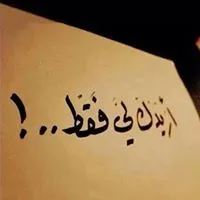 أريدك لي فقط..!